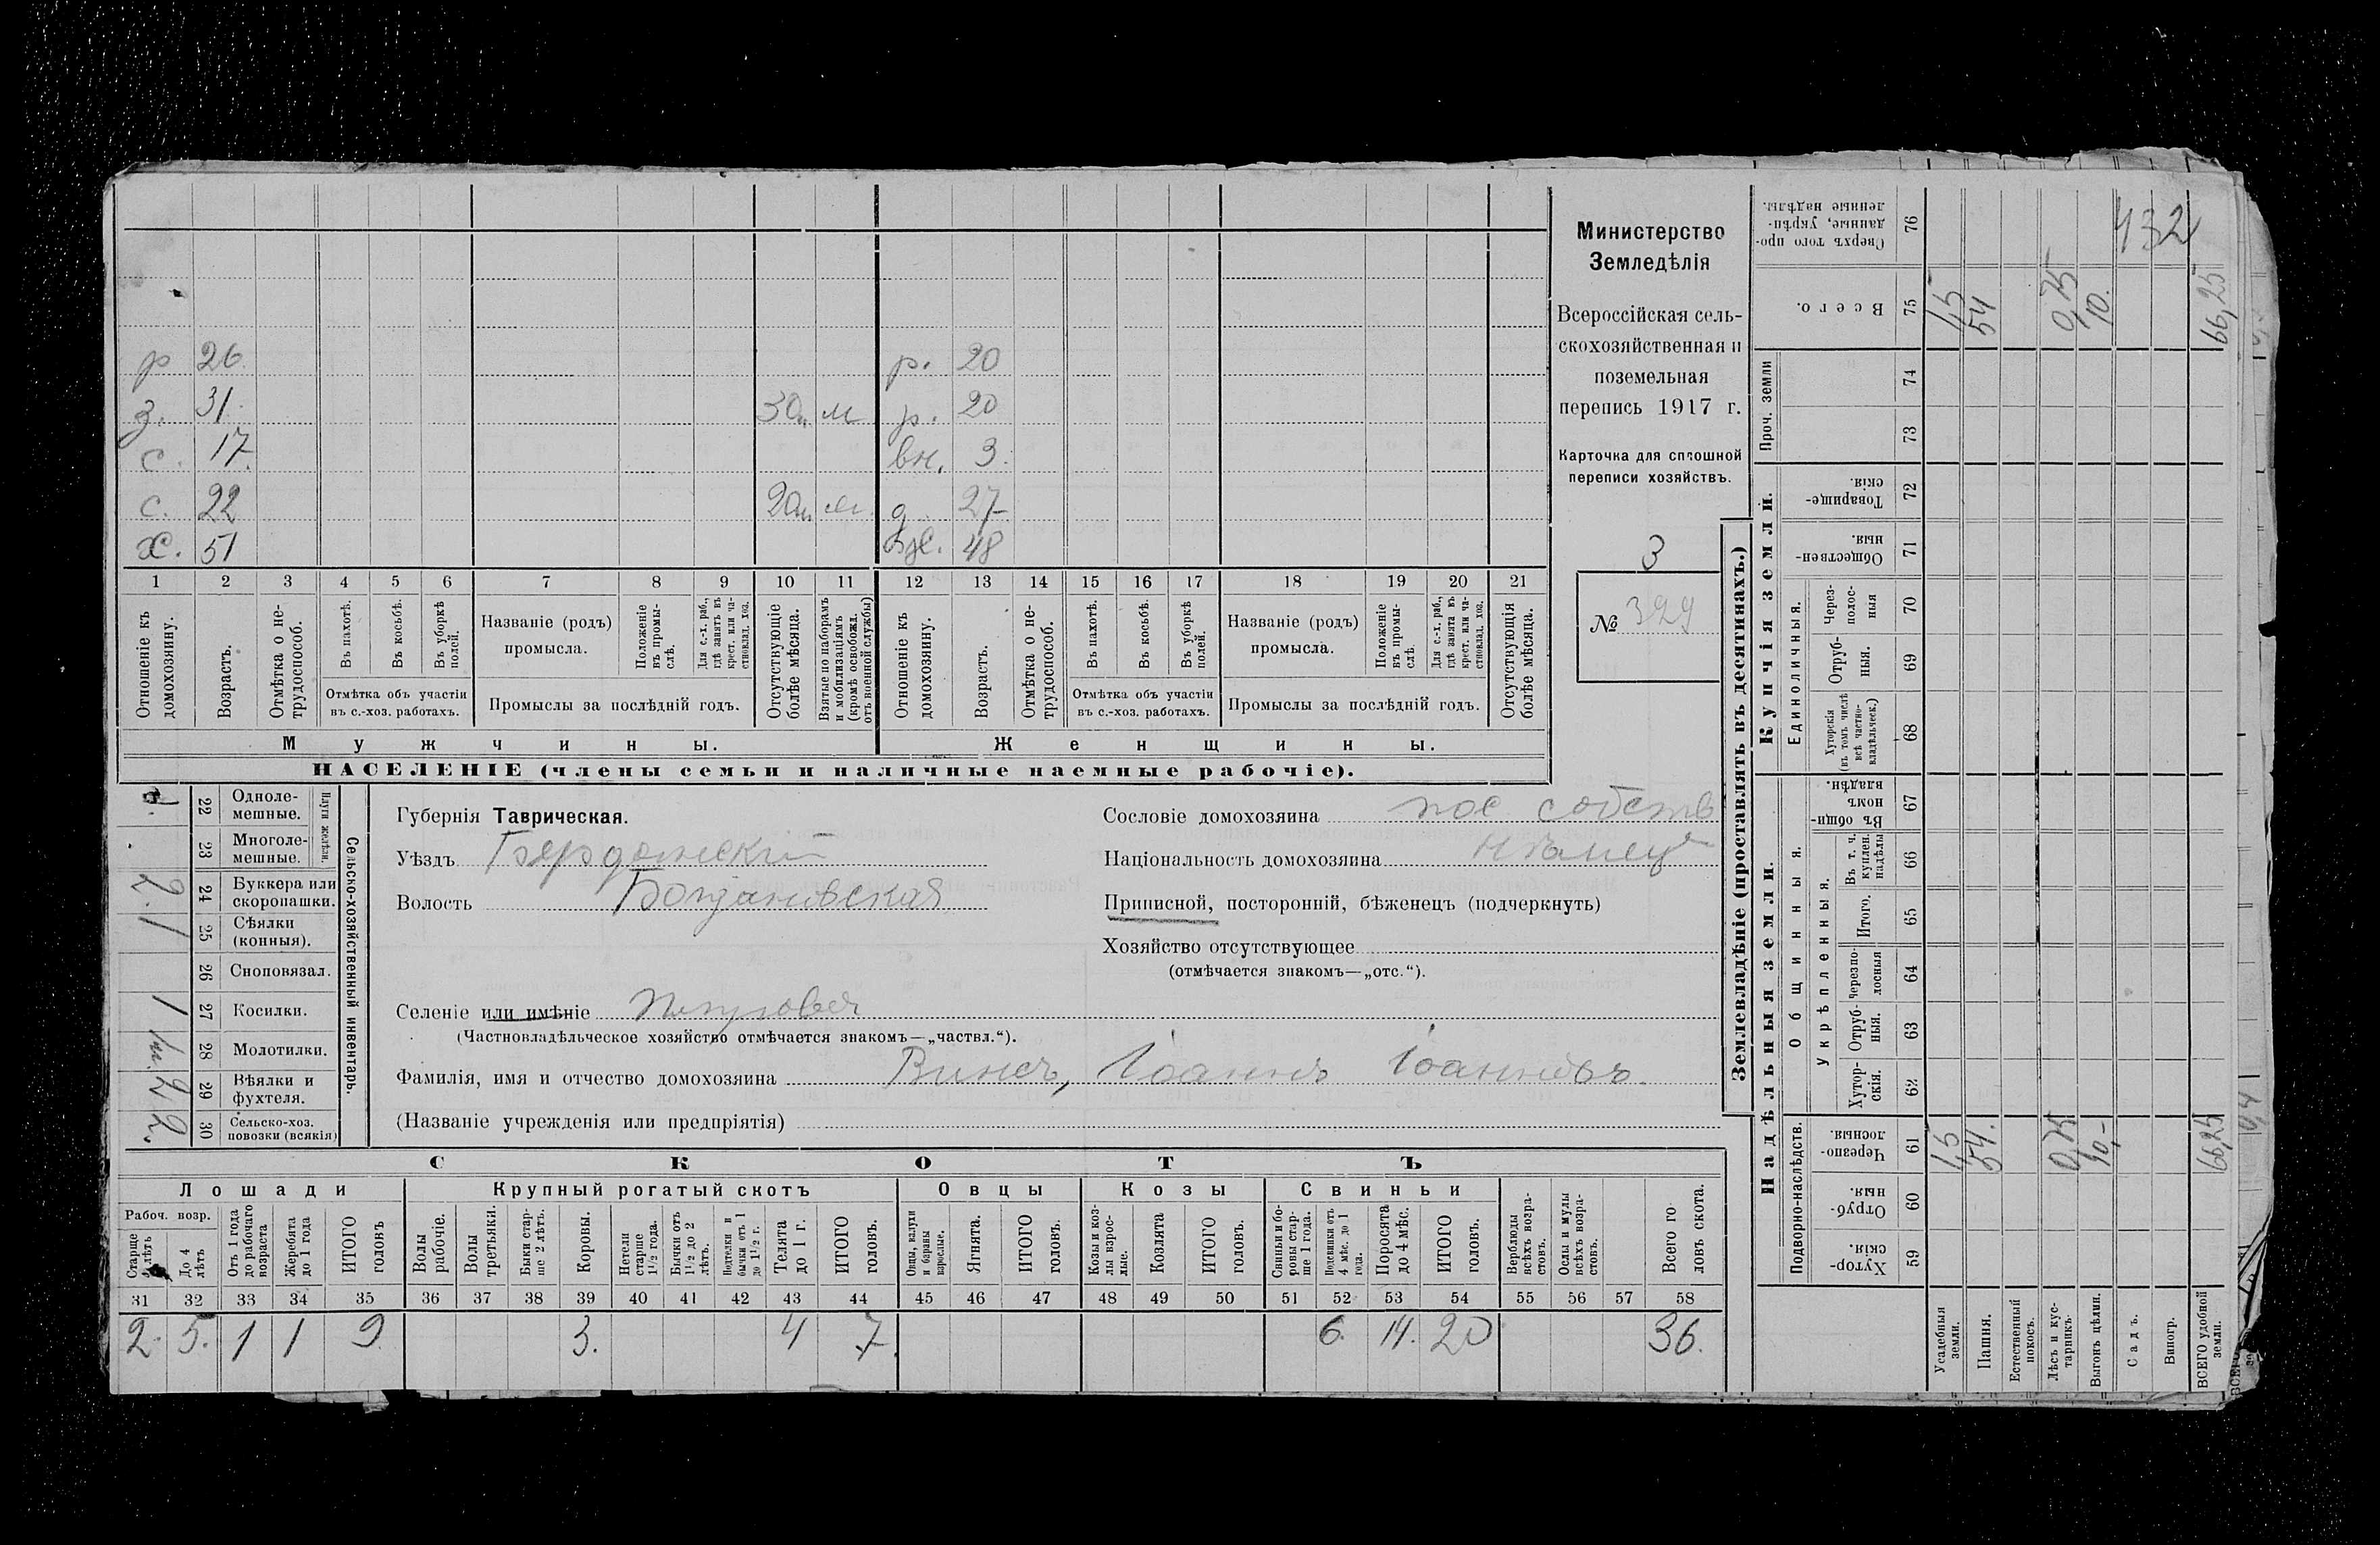 р 26. р. 20
з. 31. 30 м м р. 20
с. 17. вн. 3.
с. 22 20 м м. д. 27
х. 51 48
1 2 3 4 5 6 7 8 9 10 11 12 13 14 15 16 17 18 19 20 21
Отношеніе къ домохозяину.
Возрастъ.
Отмѣтка о нетрудоспособ.
Въ пахотѣ.
Въ косьбѣ.
Въ уборкѣ полей.
Отмѣтка объ участіи
въ с.-хоз. работахъ.
Названіе (родъ)
промысла.
Положеніе въ промыслѣ.
Для с.-х. раб., гдѣ занятъ въ крест. или частновлад. хоз.
Промыслы за послѣдній годъ.
Отсутствующіе болѣе мѣсяца.
Взятые по наборамъ и мобилизаціямъ (кромѣ освобожд. отъ военной службы)
Отношеніе къ домохозяину.
Возрастъ.
Отмѣтка о нетрудоспособ.
Въ пахотѣ.
Въ косьбѣ.
Въ уборкѣ полей.
Отмѣтка объ участіи
въ с.-хоз. работахъ.
Названіе (родъ)
промысла.
Положеніе въ промыслѣ.
Для с.-х. раб., гдѣ занята въ крест. или частновлад. хоз.
Промыслы за послѣдній годъ.
Отсутствующія болѣе мѣсяца.
Мужчины. Женщины.
НАСЕЛЕНІЕ (члены семьи и наличные наемные рабочіе).
Министерство
Земледѣлія
Всероссійская сель-
скохозяйственная и
поземельная
перепись 1917 г.
Карточка для сплошной
переписи хозяйствъ.
3
№ 329
Сельско-хозяйственный инвентарь.
Плуги желѣзн.
22 Одноле-
мешные.
23 Многоле-
мешные.
2 24 Буккера или
скоропашки.
1 25 Сѣялки
(конныя).
26 Сноповязал.
1 27 Косилки.
28 Молотилки.
29 Вѣялки и
фухтеля.
2. 30 Сельско-хоз.
повозки (всякія)
Губернія Таврическая.
Уѣздъ Бердянскій
Волость Богдановская
Селеніе или имѣніе Петровка
(Частновладѣльческое хозяйство отмѣчается знакомъ—„частвл.“).
Фамилія, имя и отчество домохозяина Винсъ, Іоаннъ Іоанновъ.
(Названіе учрежденія или предпріятія)
Сословіе домохозяина пос собств
Національность домохозяина нѣмецъ
Приписной, посторонній, бѣженецъ (подчеркнуть)
Хозяйство отсутствующее
(отмѣчается знакомъ—„отс.“).
СКОТЪ
Лошади Крупный рогатый скотъ Овцы Козы Свиньи
Рабоч. возр.
Старше лѣтъ
До 4 лѣтъ
Отъ 1 года до рабочаго возраста
Жеребята до 1 года
ИТОГО головъ
Волы рабочіе.
Волы третьяки.
Быки старше 2 лѣтъ.
Коровы.
Нетели старше 1½ года.
Бычки отъ 1½ до 2 лѣтъ.
Подтелки и бычки отъ 1 до 1½ г.
Телята до 1 г.
ИТОГО головъ.
Овцы, валухи и бараны взрослые.
Ягнята.
ИТОГО головъ.
Козы и козлы взрослые.
Козлята
ИТОГО головъ.
Свиньи и боровы старше 1 года.
Подсвинки отъ 4 мѣс. до 1 года.
Поросята до 4 мѣс.
ИТОГО головъ.
Верблюды всѣхъ возрастовъ.
Ослы и мулы всѣхъ возрастовъ.
Всего головъ скота.
31 32 33 34 35 36 37 38 39 40 41 42 43 44 45 46 47 48 49 50 51 52 53 54 55 56 57 58
2. 5. 1 1 9. 3. 4 7. 6. 14. 20 36.
Землевладѣніе (проставлять въ десятинахъ.)
Надѣльныя земли. Купчія земли. Проч. земли
Подворно-наслѣдств.
Общинныя.
Укрѣпленныя.
Единоличныя.
Хуторскія. 59
Отрубныя. 60
Черезполосныя. 61
Хуторскія. 62
Отрубныя. 63
Черезполосныя 64
Итого. 65
Въ т. ч. куплен. надѣлы 66
Въ общинномъ владѣн. 67
Хуторскія (въ томъ числѣ всѣ частновладѣльческ.) 68
Отрубныя. 69
Черезполосныя 70
Общественныя. 71
Товарищескія. 72
73
74
Всего. 75
Сверхъ того проданные, укрѣпленные надѣлы. 76
Усадебныя земли. 1,5 1,5
Пашня. 54. 54
Естественный покосъ.
Лѣсъ и кустарникъ. 0,75 0,75
Выгонъ цѣлин. 10,- 10.
Садъ.
Виногр.
ВСЕГО удобной земли. 66,25 66,25
432